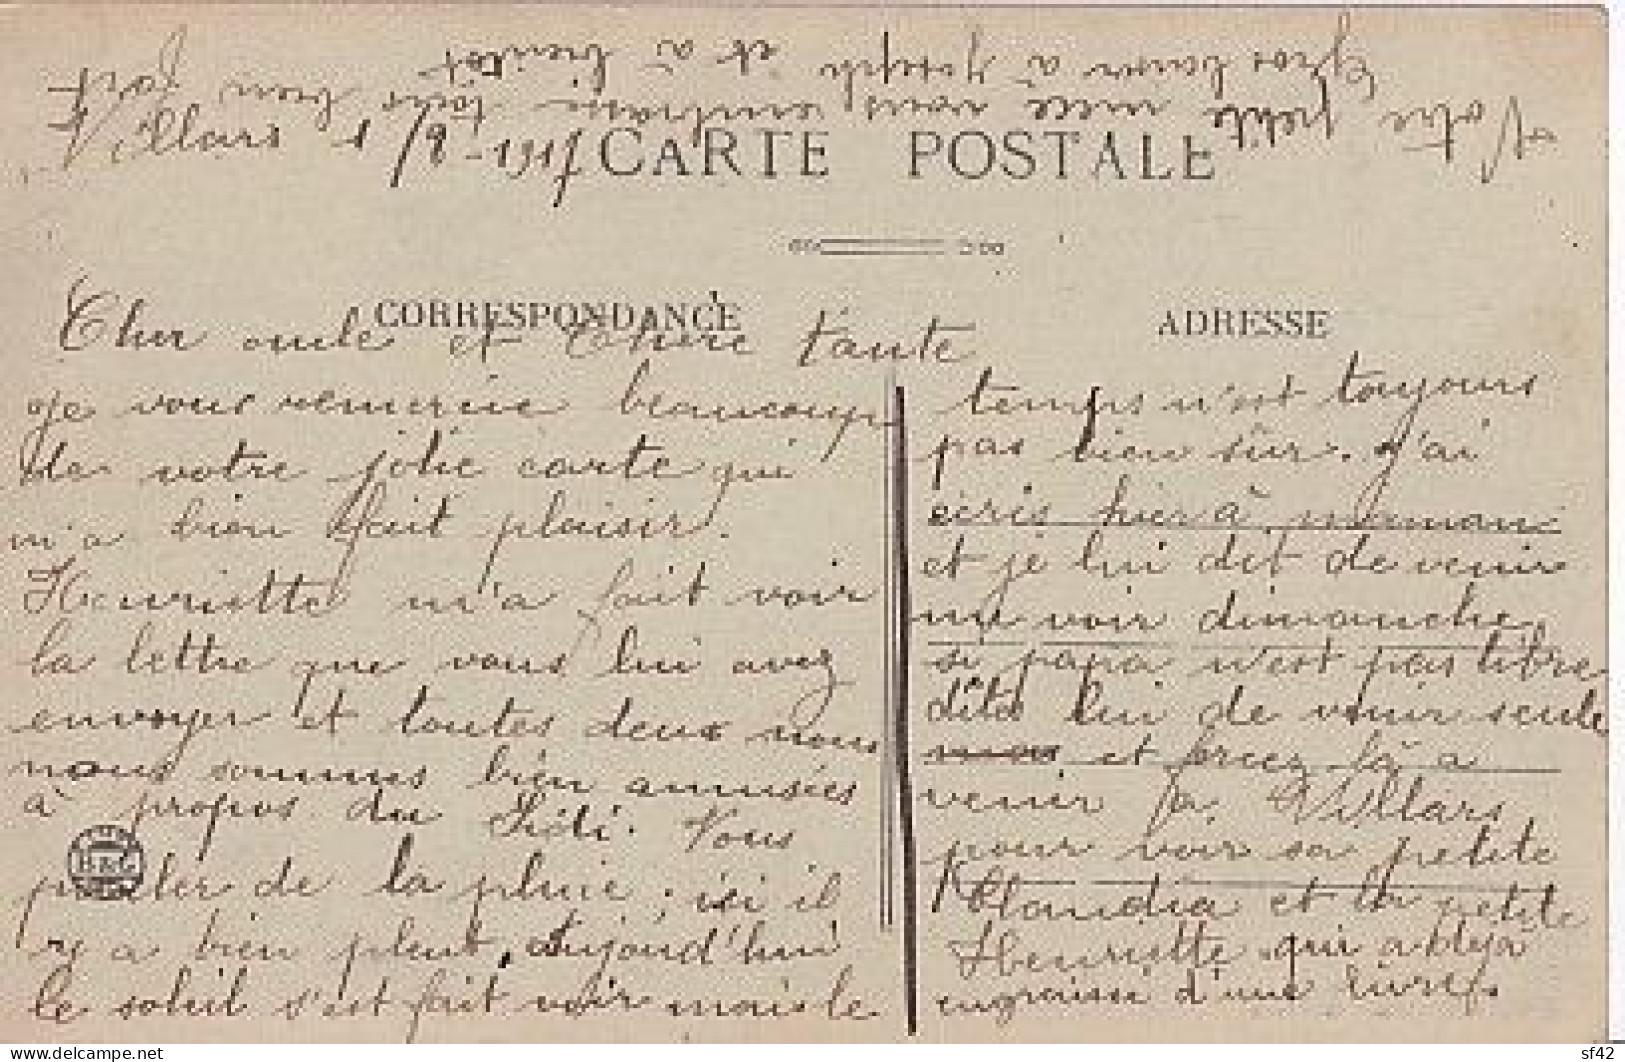 Villars
CARTE POSTALE
CORRESPONDANCE
ADRESSE
Cher oncle et Chère tante
je vous remercie beaucoup
de votre jolie carte qui
m'a bien fait plaisir.
Henriette m'a fait voir
la lettre que vous lui avez
envoyer et toutes deux nous
nous sommes bien amusées
à propos du Sidi. Vous
parler de la pluie, ici il
y a bien pleut, Aujourd'hui
le soleil s'est fait voir mais le
temps n'est toujours
pas bien sûr. J'ai
écris hier à maman
et je lui dit de venir
me voir dimanche,
si papa n'est pas libre
dita lui de venir seule
et là a
venir à Villars
pour voir sa petite
Claudia et la petite
Henriette qui a déjà
engraissé d'une livre.
Votre petite niece vous embrasse tous bien fort
Gros baiser à Joseph et à bientôt
B & G
delcampe.net
sf42